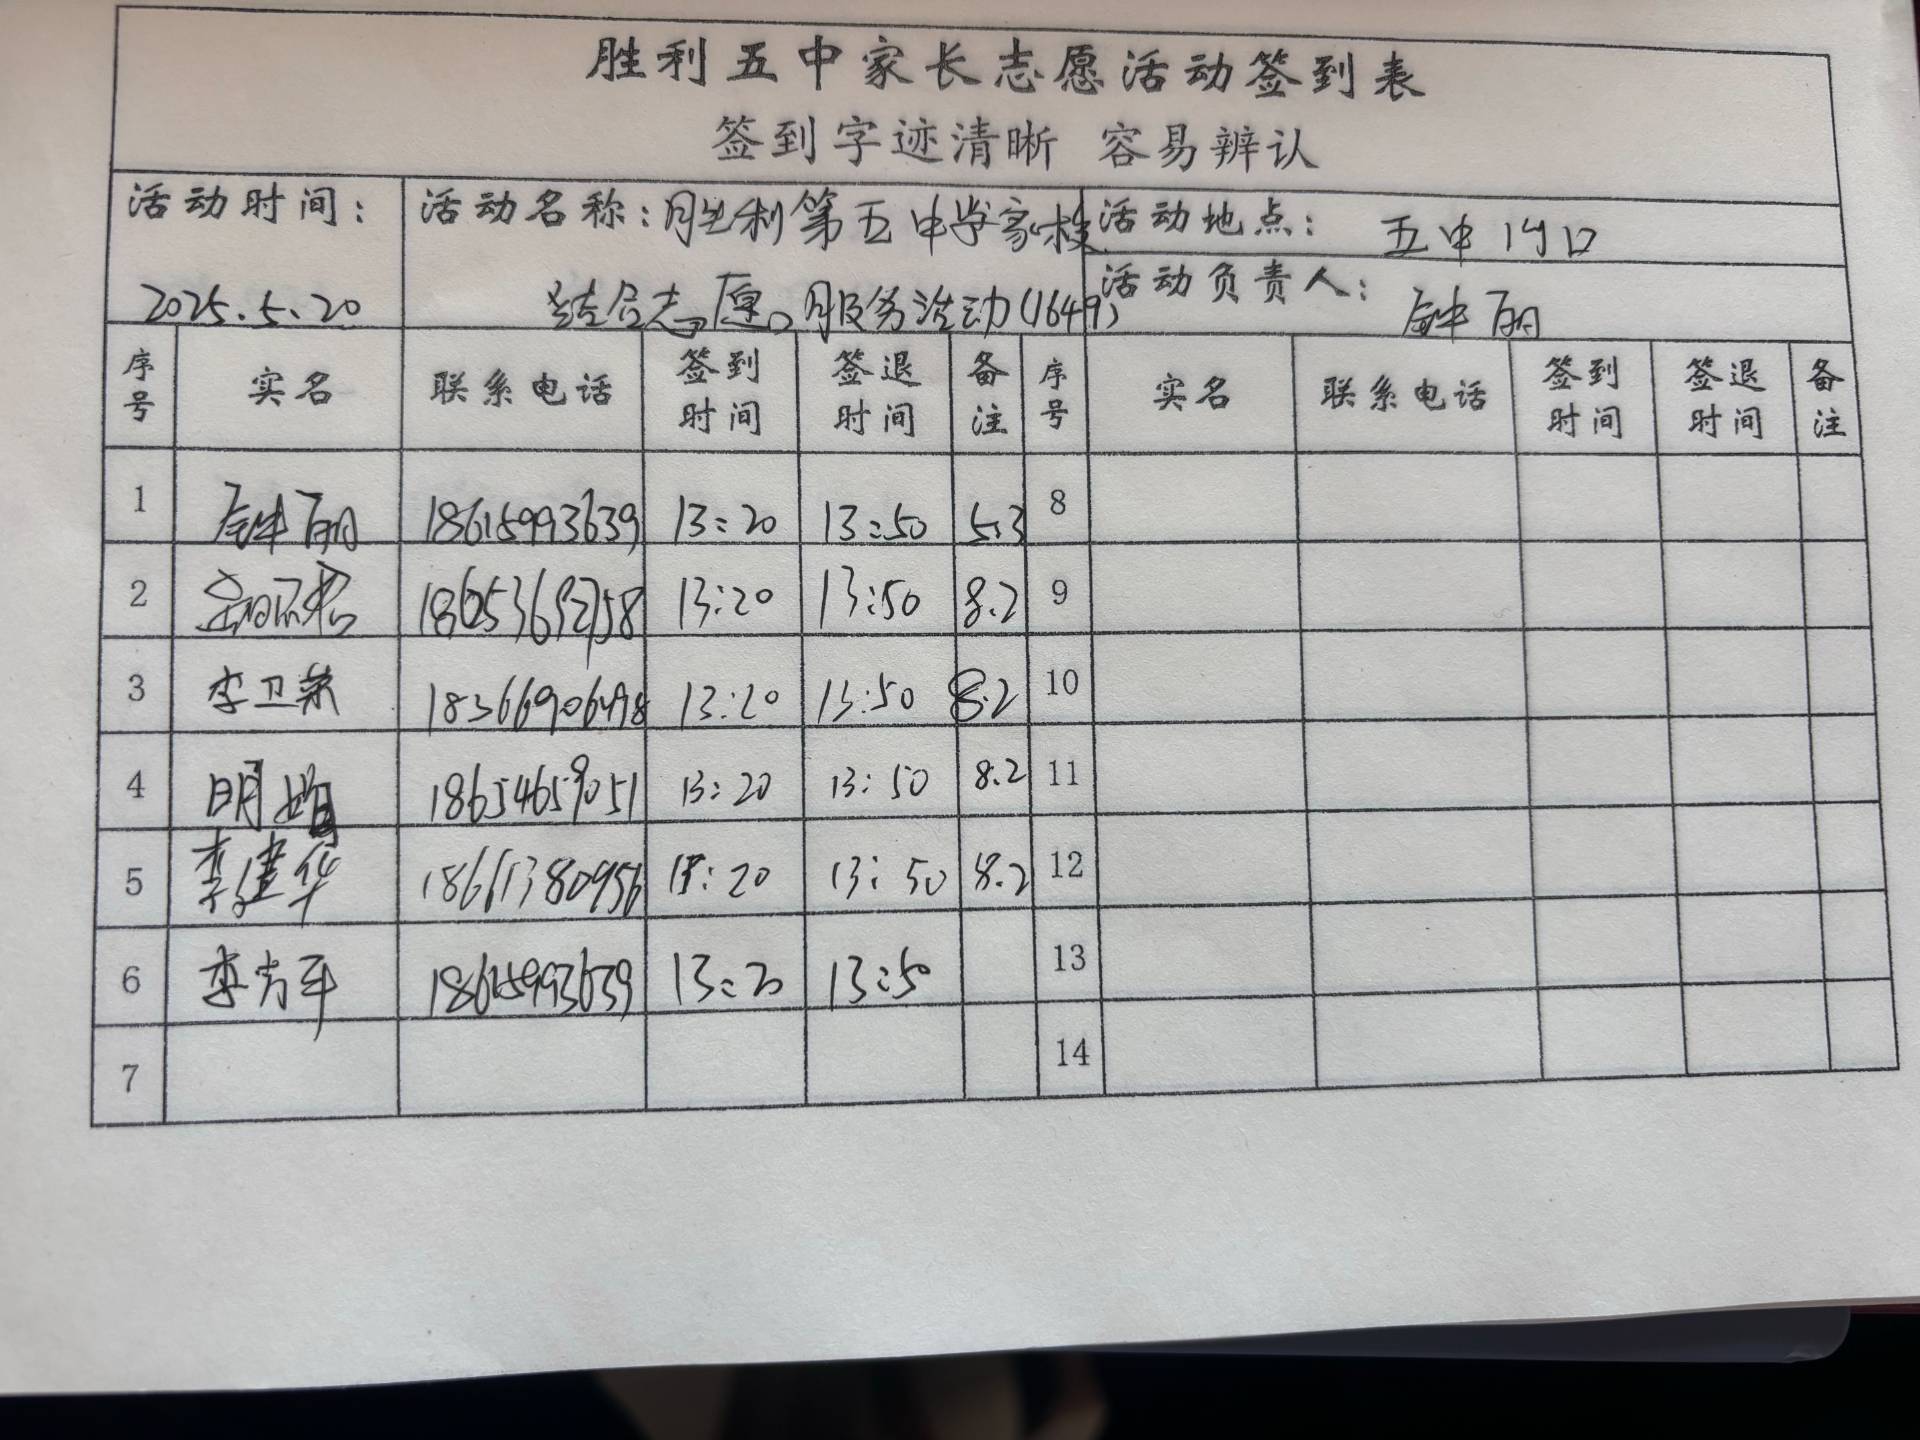 胜利五中家长志愿活动签到表
签到字迹清晰 容易辨认
活动时间： 活动名称：胜利第五中学家校 活动地点： 五中门口
2025.5.20 结合志愿服务活动(1649) 活动负责人： 钟丽
序号 实名 联系电话 签到时间 签退时间 备注 序号 实名 联系电话 签到时间 签退时间 备注
1 钟丽 18615993639 13:20 13:50 5.3 8
2 13:20 13:50 8.2 9
3 李卫荣 18366906498 13:20 13:50 8.2 10
4 明娟 18654659051 13:20 13:50 8.2 11
5 李建华 18661380956 13:20 13:50 8.2 12
6 李 18615993639 13:20 13:50 13
7 14